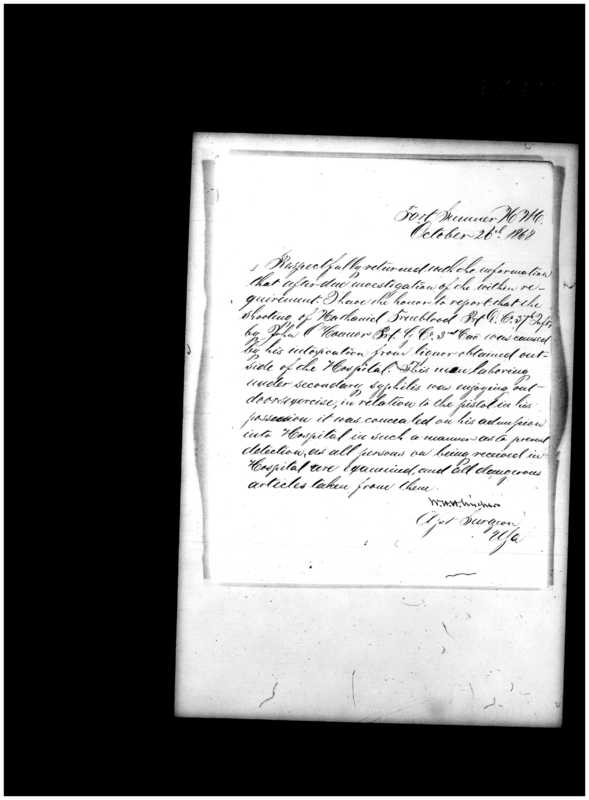 Fort Sumner N.M.
October 26th 1868
Respectfully returned with the information
that after due investigation of the within re-
quirement I have the honor to report that the
shooting of Nathaniel Trueblood Pvt G. Co. 37th Inft.
by John O'Connor Pvt. G. Co. 3rd Cav was caused
by his intoxication from liquor obtained out-
side of the Hospital. This man laboring
under secondary syphilis was enjoying out
door exercise, in relation to the pistol in his
possession it was concealed on his admission
into Hospital in such a manner as to prevent
detection, as all persons on being received in
Hospital are examined, and all dangerous
articles taken from them.
Surgeon
USA